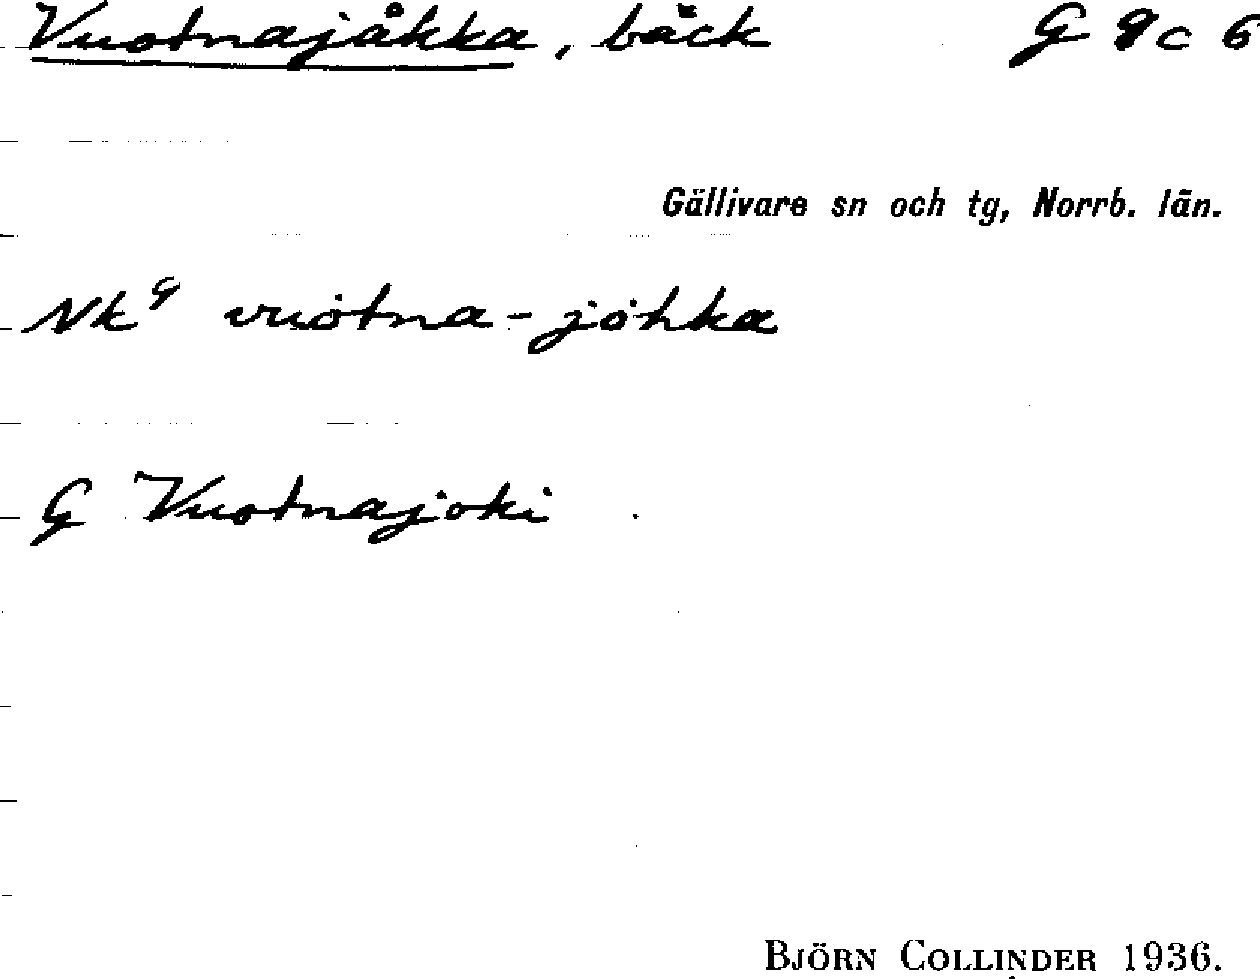 Vuotnajåkka, bäck G 9c 6
Gällivare sn och tg, Norrb. län.
Nkᵍ vuȯtna-jȯhka
G Vuotnajoki
BJÖRN COLLINDER 1936.